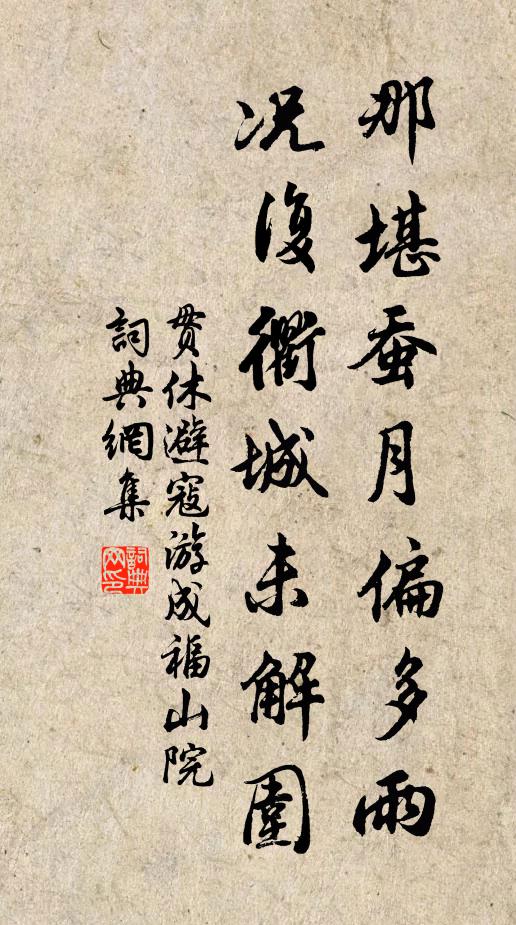 那堪蚕月偏多雨
况復衢城未解圍
贯休避寇游成福山院
詞典網集
詞典網印